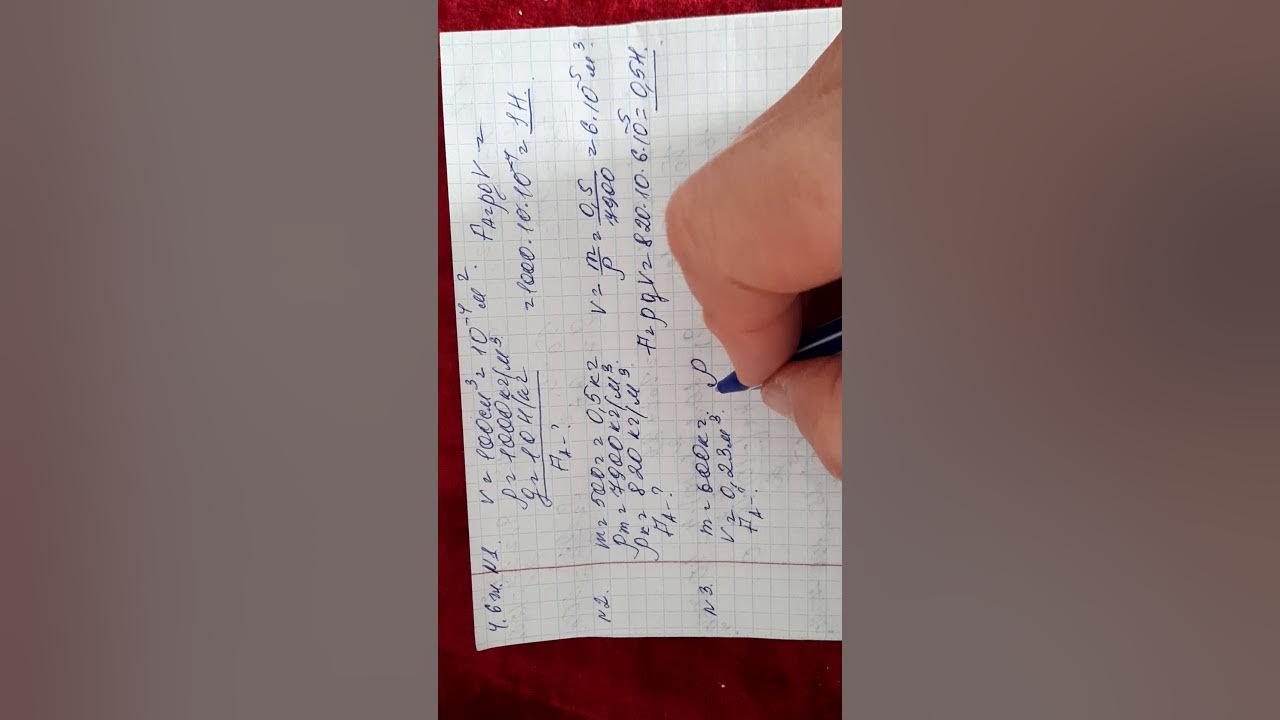 Ч. бж. №1. V = 100см³ = 10⁻⁴ м². FA = ρgV =
ρ = 1000кг/м³ = 1000·10·10⁻⁴ = 1Н.
g = 10Н/кг
FA - ?
№2. m = 500г = 0,5кг V = m/ρ = 0,5/7900 = 6·10⁻⁵ м³.
ρт = 7900кг/м³.
ρк = 820 кг/м³. FA = ρgV = 820·10·6·10⁻⁵ = 0,5Н.
FA - ?
№3. m = 600кг. ρ
V = 0,23м³.
FA - ?